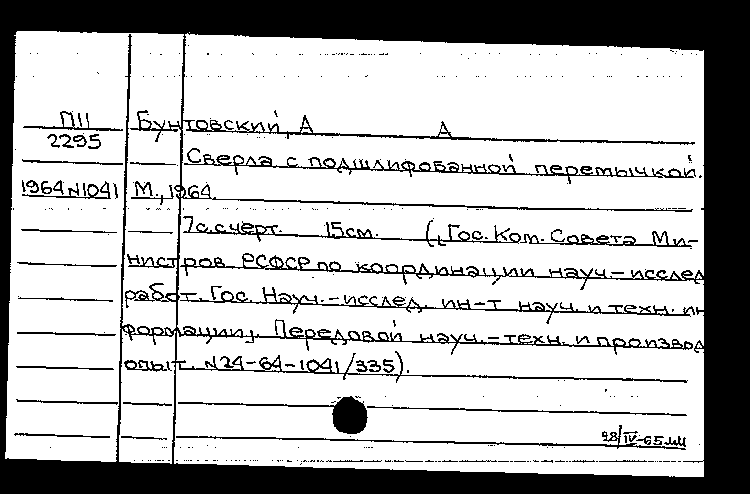 П11 Бунтовский, А А
2295
Сверла с подшлифованной перемычкой.
1964N1041 М., 1964.
7с.счерт. 15см. ([Гос. Ком. Совета Ми-
нистров РСФСР по координации науч.-исслед
работ. Гос. Науч.-исслед. ин-т науч. и техн. ин
формации]. Передовой науч.-техн. и производ
опыт. N24-64-1041/335).
28/IV-65